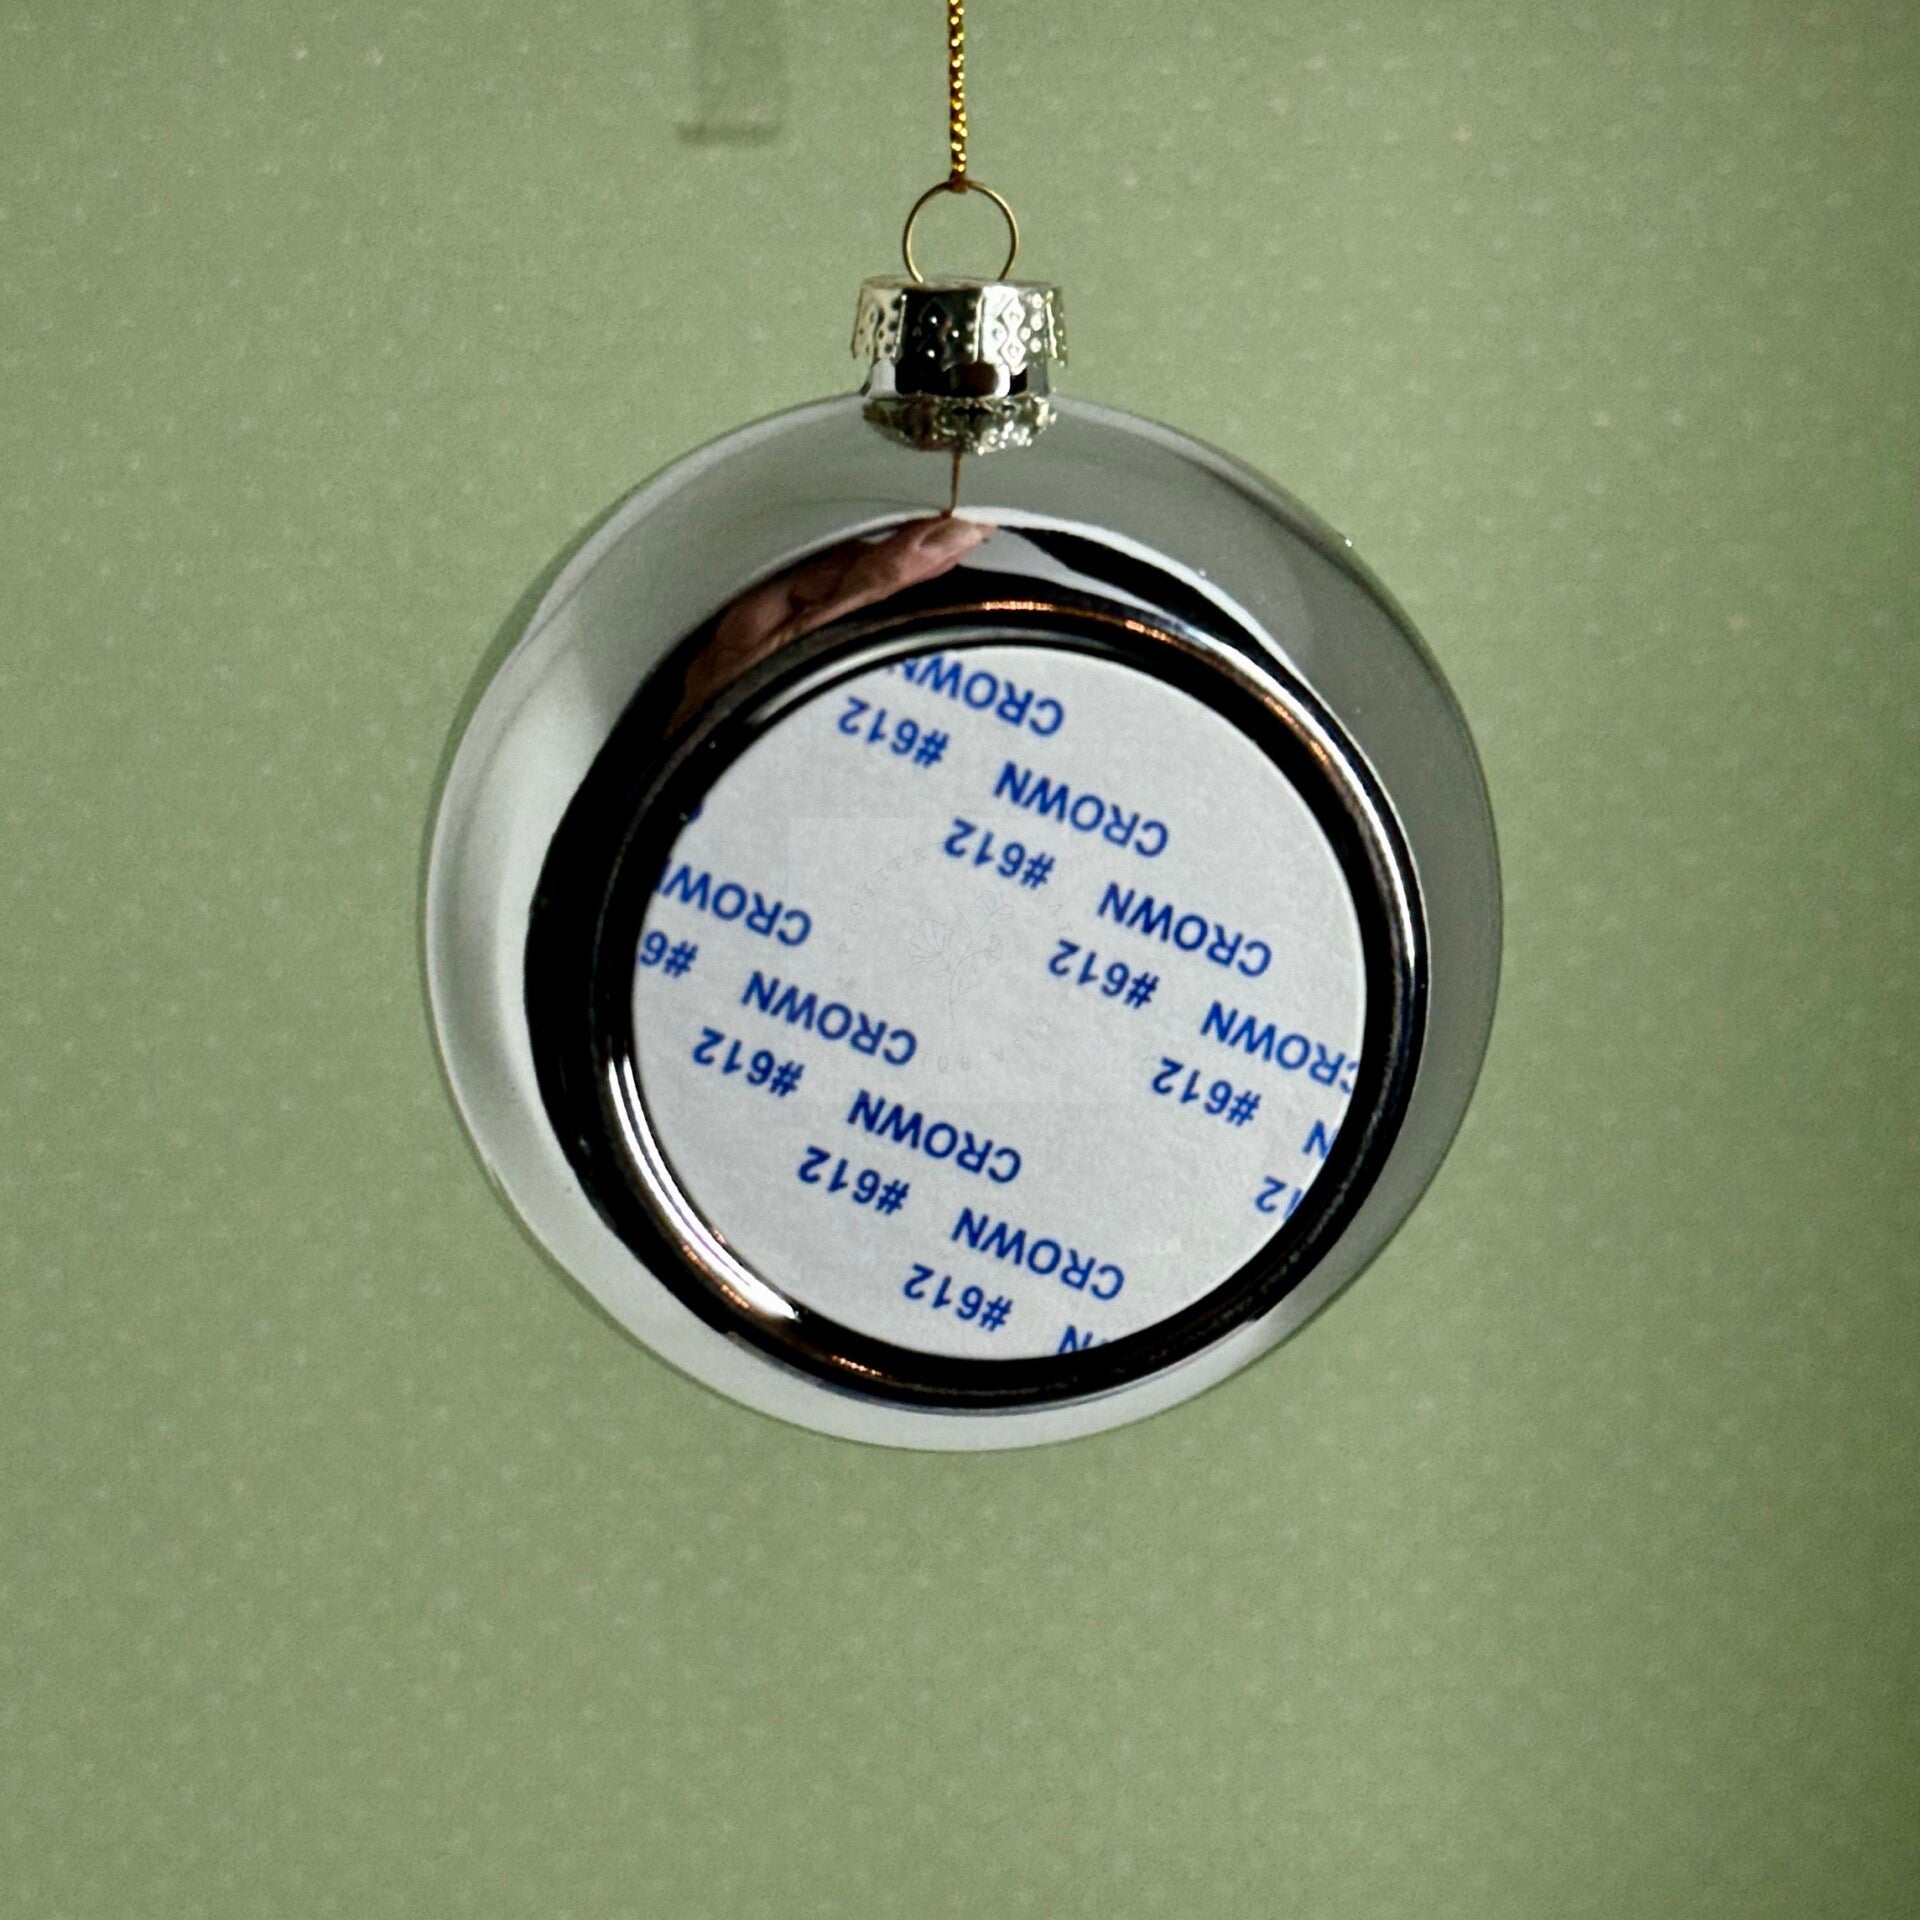 12
N #612
CROWN #612
CROWN #612
CROWN #612
CROWN
N #612
CROWN #612
CROWN #612
CROWN #6
CROW